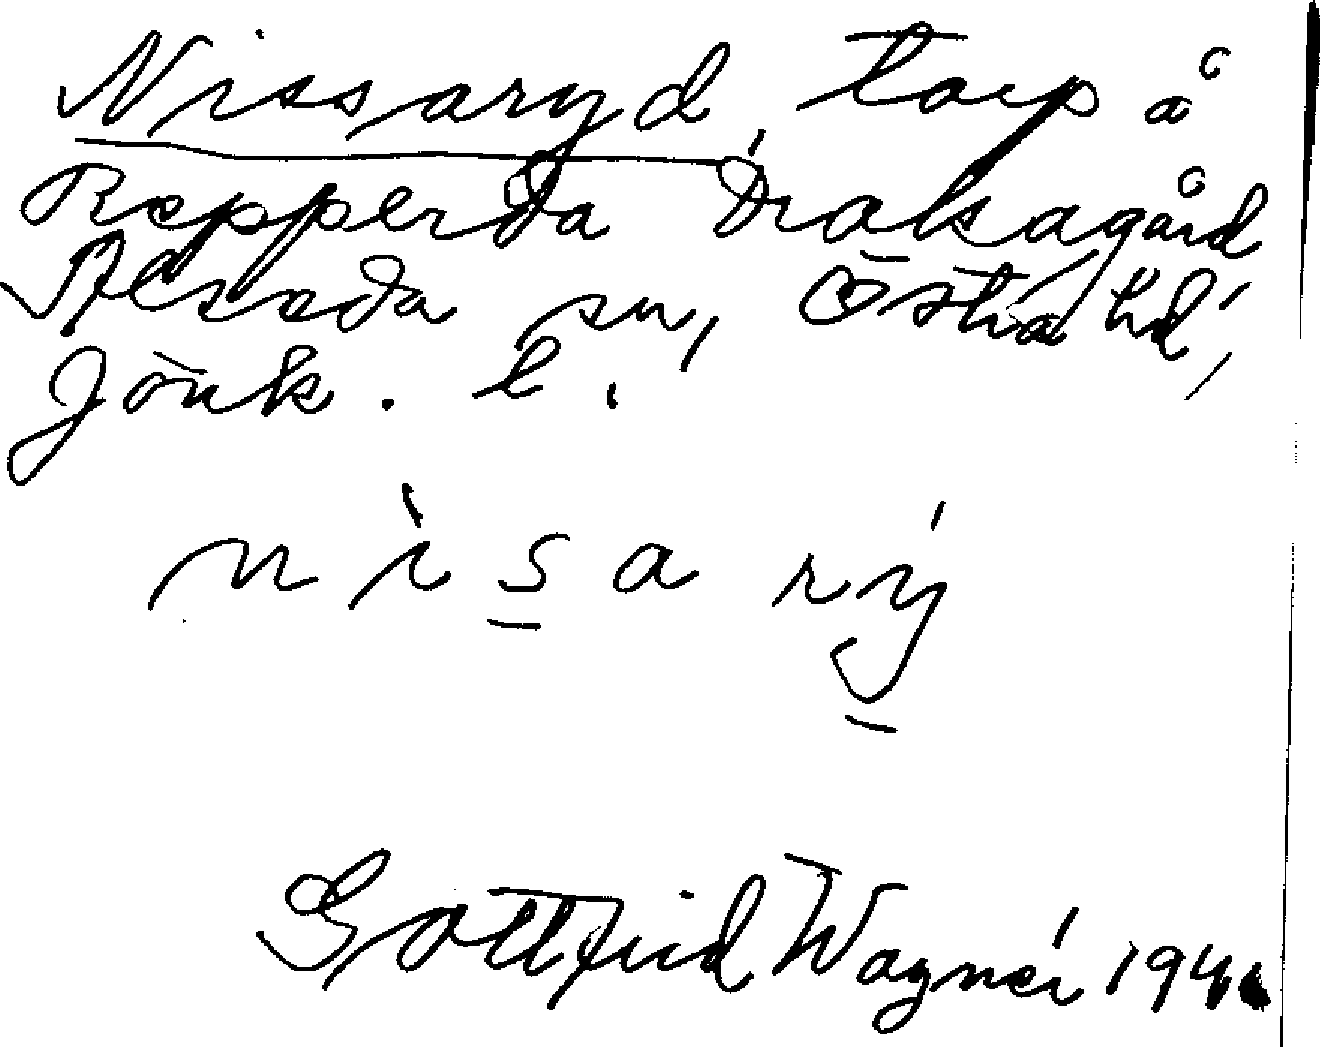 Nissaryd, torp å
Repperda Drakagård
Näsads sn, Östra hd,
Jönk. l.
nisarý
Gottfrid Wagnér 194